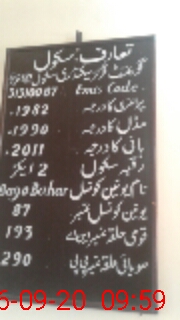 تعارف سکول
گورنمنٹ گرلز سیکنڈری سکول
31310007 Emis Code
پرائمری کا درجہ 1982
مڈل کا درجہ 1990
ہائی کا درجہ 2011
رقبہ سکول 2 ایکڑ
نام یونین کونسل Bago Bahar
یونین کونسل نمبر 87
قومی حلقہ نمبر این اے 193
صوبائی حلقہ نمبر پی پی 290
6-09-20 09:59